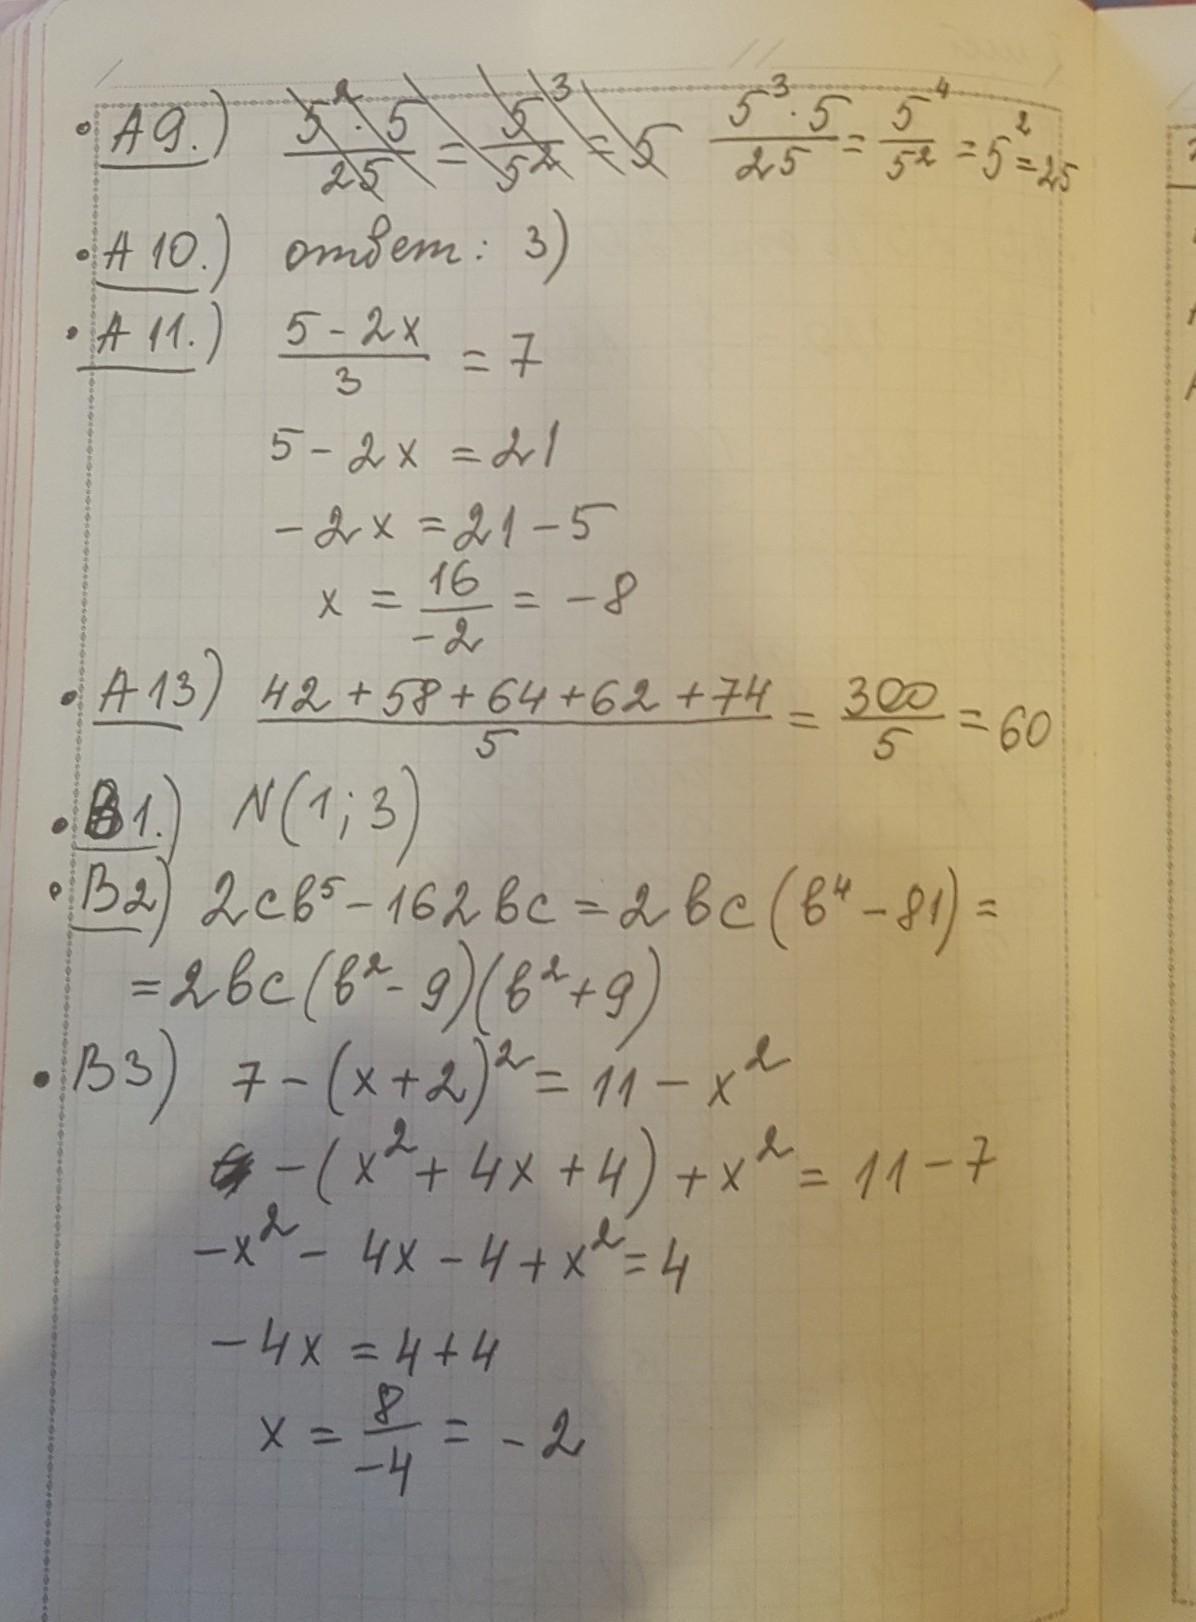 A9.) 5²·5/25 = 5³/5² = 5 5³·5/25 = 5⁴/5² = 5² = 25
A10.) ответ: 3)
A11.) (5 - 2x)/3 = 7
5 - 2x = 21
-2x = 21 - 5
x = 16/-2 = -8
A13) (42 + 58 + 64 + 62 + 74)/5 = 300/5 = 60
B1.) N(1; 3)
B2) 2cb⁵ - 162bc = 2bc(b⁴ - 81) =
= 2bc(b² - 9)(b² + 9)
B3) 7 - (x + 2)² = 11 - x²
- (x² + 4x + 4) + x² = 11 - 7
-x² - 4x - 4 + x² = 4
-4x = 4 + 4
x = 8/-4 = -2